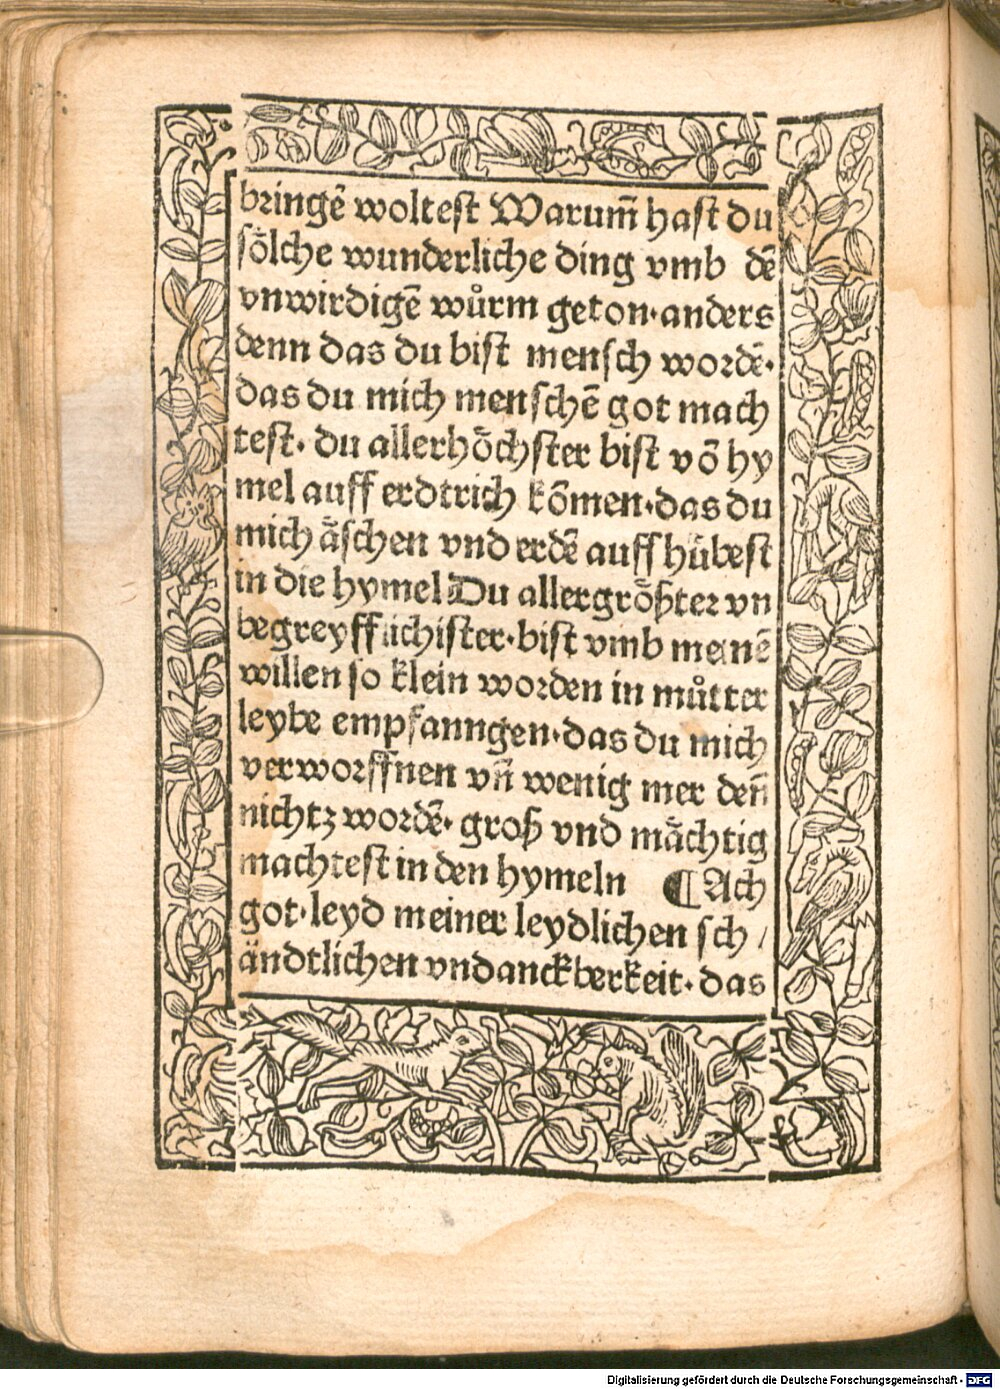 bringē woltest Warum̄ hast du
soͤlche wunderliche ding vmb dē
vnwirdigē wuͤrm geton·anders
denn das du bist mensch wordē·
das du mich menschē got mach
test· du allerhoͤchster bist vō hy
mel auff erdtrich kōmen·das du
mich aͤschen vnd erdē auff huͤbest
in die hymel Du allergroͤßter vn
begreyfflichister·bist vmb meinē
willen so klein worden in můtter
leybe empfanngen·das du mich
verworffnen vn̄ wenig mer den̄
nichtz wordē· groß vnd maͤchtig
machtest in den hymeln ¶ Ach
got·leyd meiner leydlichen sch /
aͤndtlichen vndanckberkeit· das
Digitalisierung gefördert durch die Deutsche Forschungsgemeinschaft - DFG